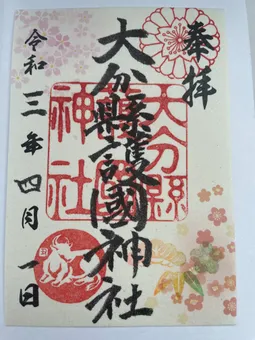 奉拝
大分縣護國神社
大分縣
護國
神社
令和三年四月一日